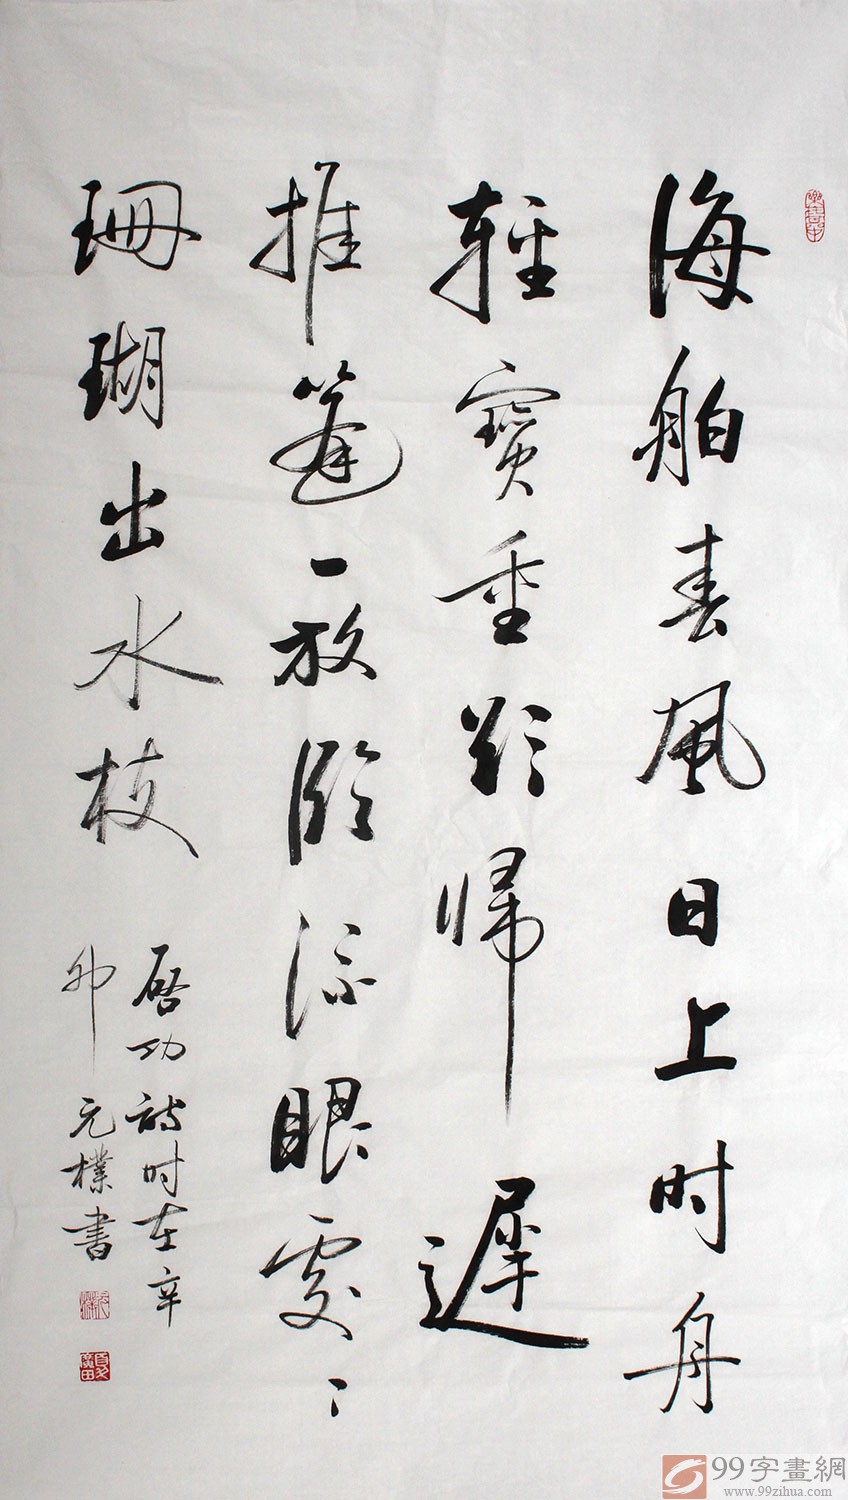 海舶春風日上时舟
輕寶重欲帰遲
推篷一放臨流眼處〻
珊瑚出水枝
啓功詩时在辛
卯元樸書
99字畫網
www.99zihua.com